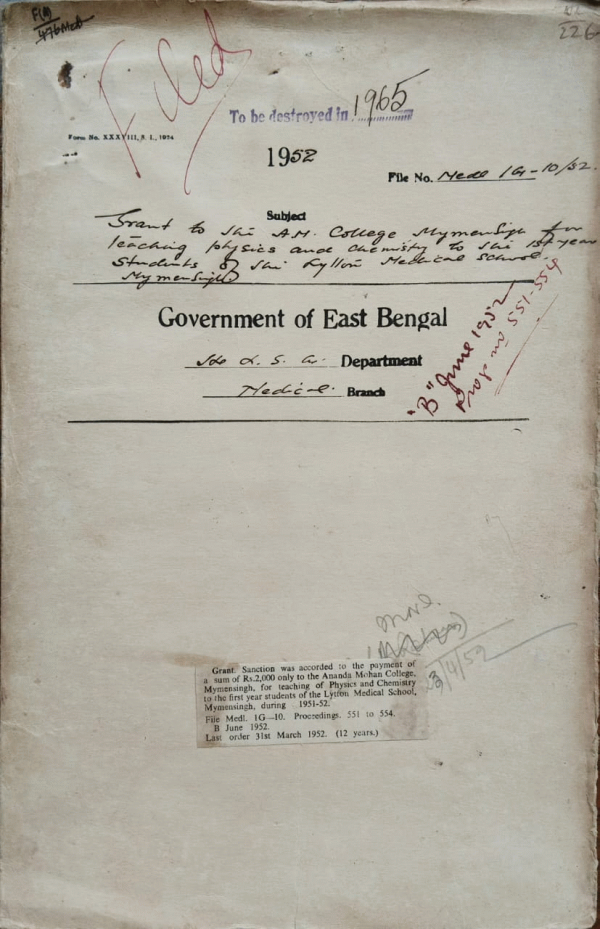 F(A)
476 Med
226
Filed
To be destroyed in 1965
Form No. XXXVIII, S. I., 1924
1952
File No. Medl 1G-10/52.
Subject
Grant to the A.M. College Mymensingh for
teaching physics and chemistry to the 1st year
students of the Lytton Medical School.
Mymensingh
Government of East Bengal
L. S. G. Department
Medical Branch
"B" June 1952
Progs no 551-554
23/4/52
Grant. Sanction was accorded to the payment of
a sum of Rs.2,000 only to the Ananda Mohan College,
Mymensingh, for teaching of Physics and Chemistry
to the first year students of the Lytton Medical School,
Mymensingh, during 1951-52.
File Medl. 1G—10. Proceedings. 551 to 554.
B June 1952.
Last order 31st March 1952. (12 years.)